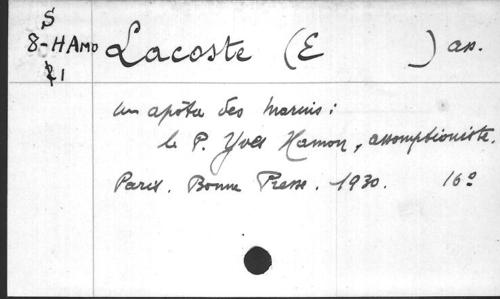 S
8-HAMO
R1
Lacoste (E ) as.
Un apôtre des marins :
le P. Yves Hamon, assomptioniste.
Paris. Bonne Presse. 1930. 16º